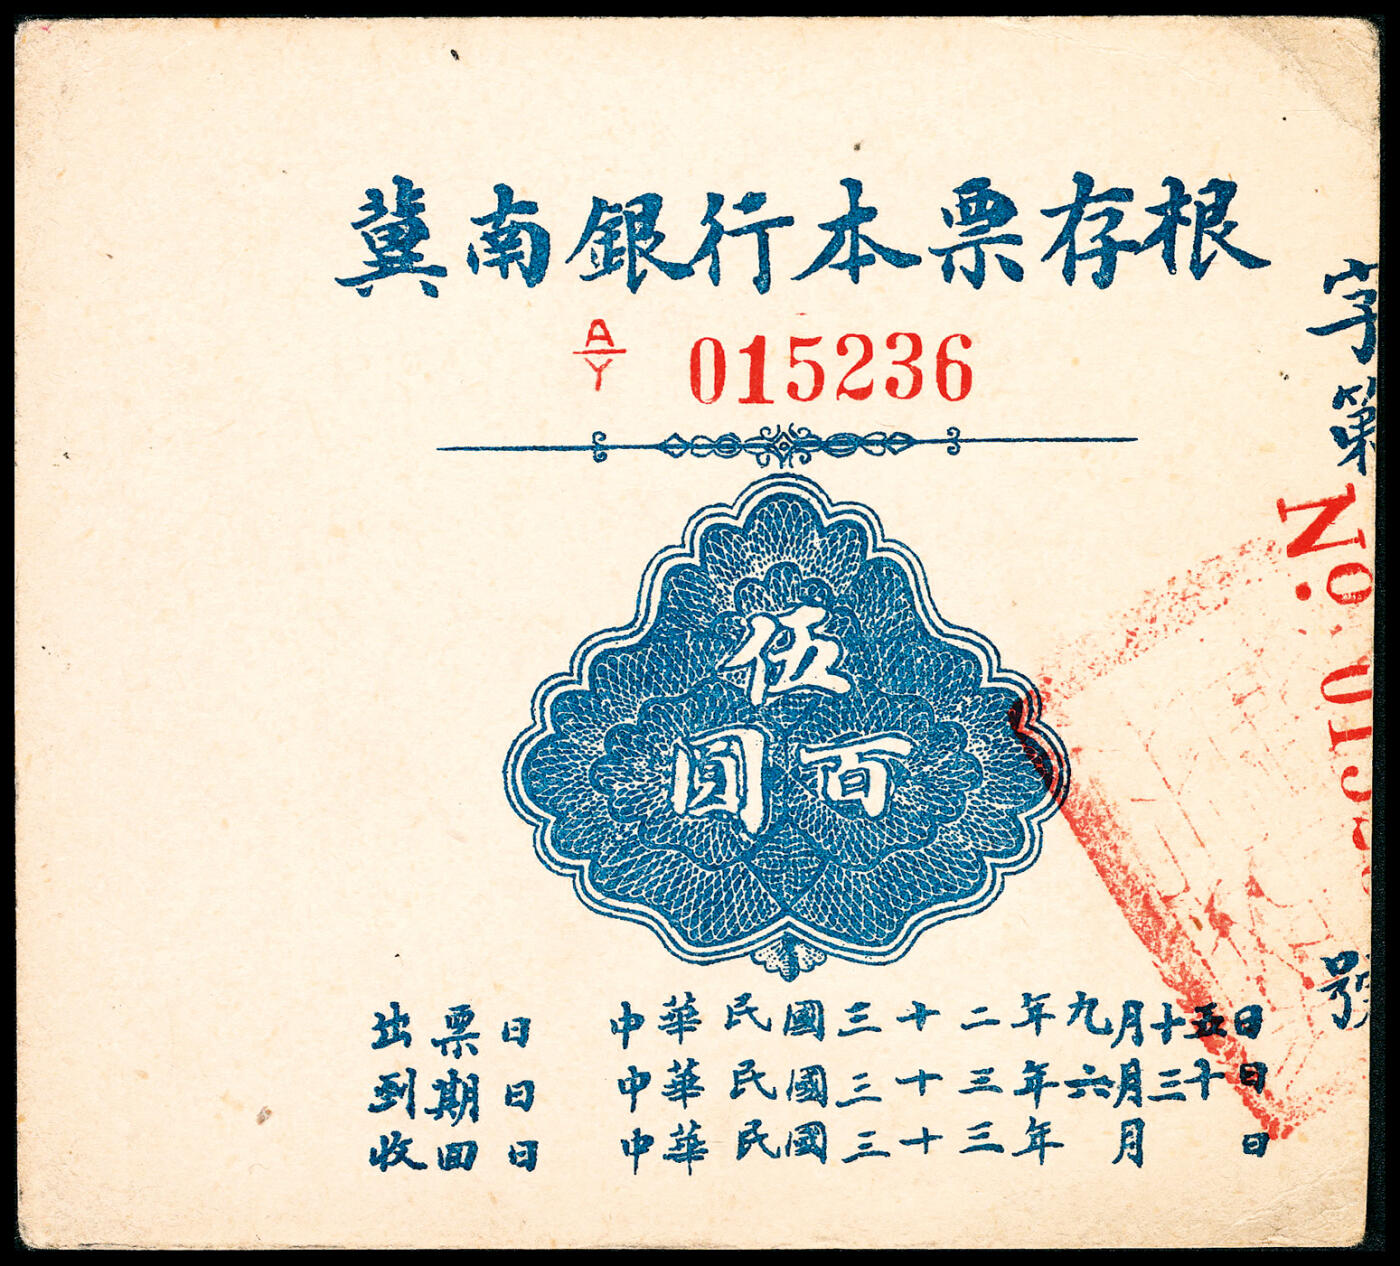 冀南銀行本票存根
A/Y 015236
伍
百圓
出票日 中華民國三十二年九月十五日
到期日 中華民國三十三年六月三十日
收回日 中華民國三十三年 月 日
字第
No. 015
號